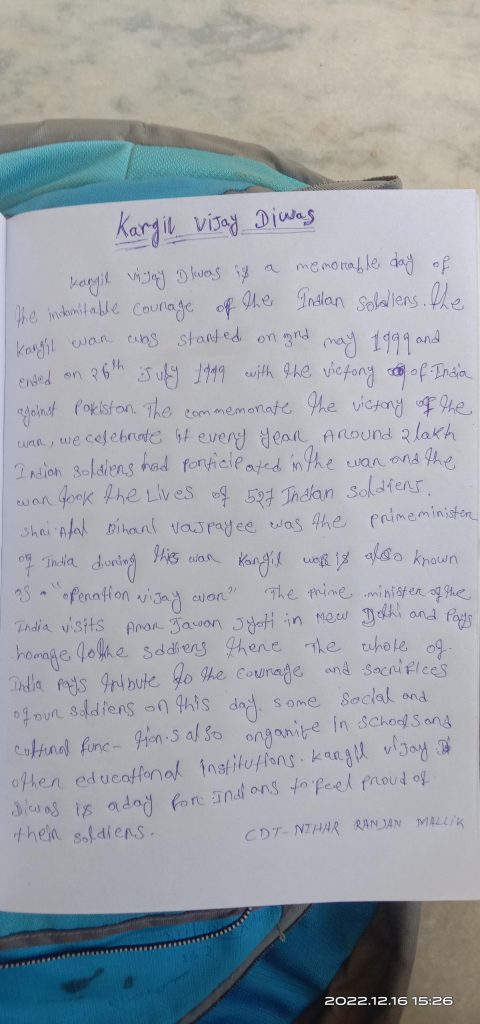 Kargil Vijay Diwas
Kargil Vijay Diwas is a memorable day of
the indomitable courage of the Indian soldiers. The
Kargil war was started on 3rd may 1999 and
ended on 26th July 1999 with the victory of India
against Pakistan. The commemorate the victory of the
war, we celebrate it every year. Around 2 lakh
Indian soldiers had participated in the war and the
war took the Lives of 527 Indian soldiers.
Shri. Atal Bihari Vajpayee was the primeminister
of India during this war Kargil war is also known
as a "operation vijay war" The prime minister of the
India visits Amar Jawan Jyoti in New Delhi and pays
homage to the soldiers there The whole of
India pays tribute to the courage and sacrifices
of our soldiers on this day. some social and
cultural func- tion.s also organite in schools and
other educational institutions. Kargil vijay
Diwas is a day for Indians to feel proud of
their soldiers.
CDT-NIHAR RANJAN MALLIK
2022.12.16 15:26